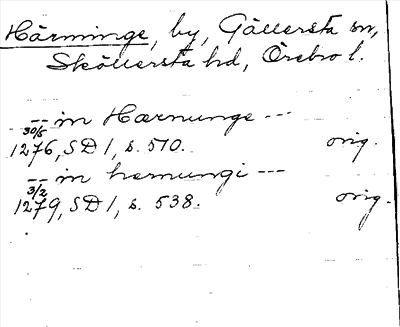 Härminge, by, Gällersta sn,
Sköllersta hd, Örebro l.
-- in Hærnunge ---
30/5
1276, SD 1, s. 570. orig.
-- in hernungi ---
3/2
1279, SD 1, s. 538. orig.